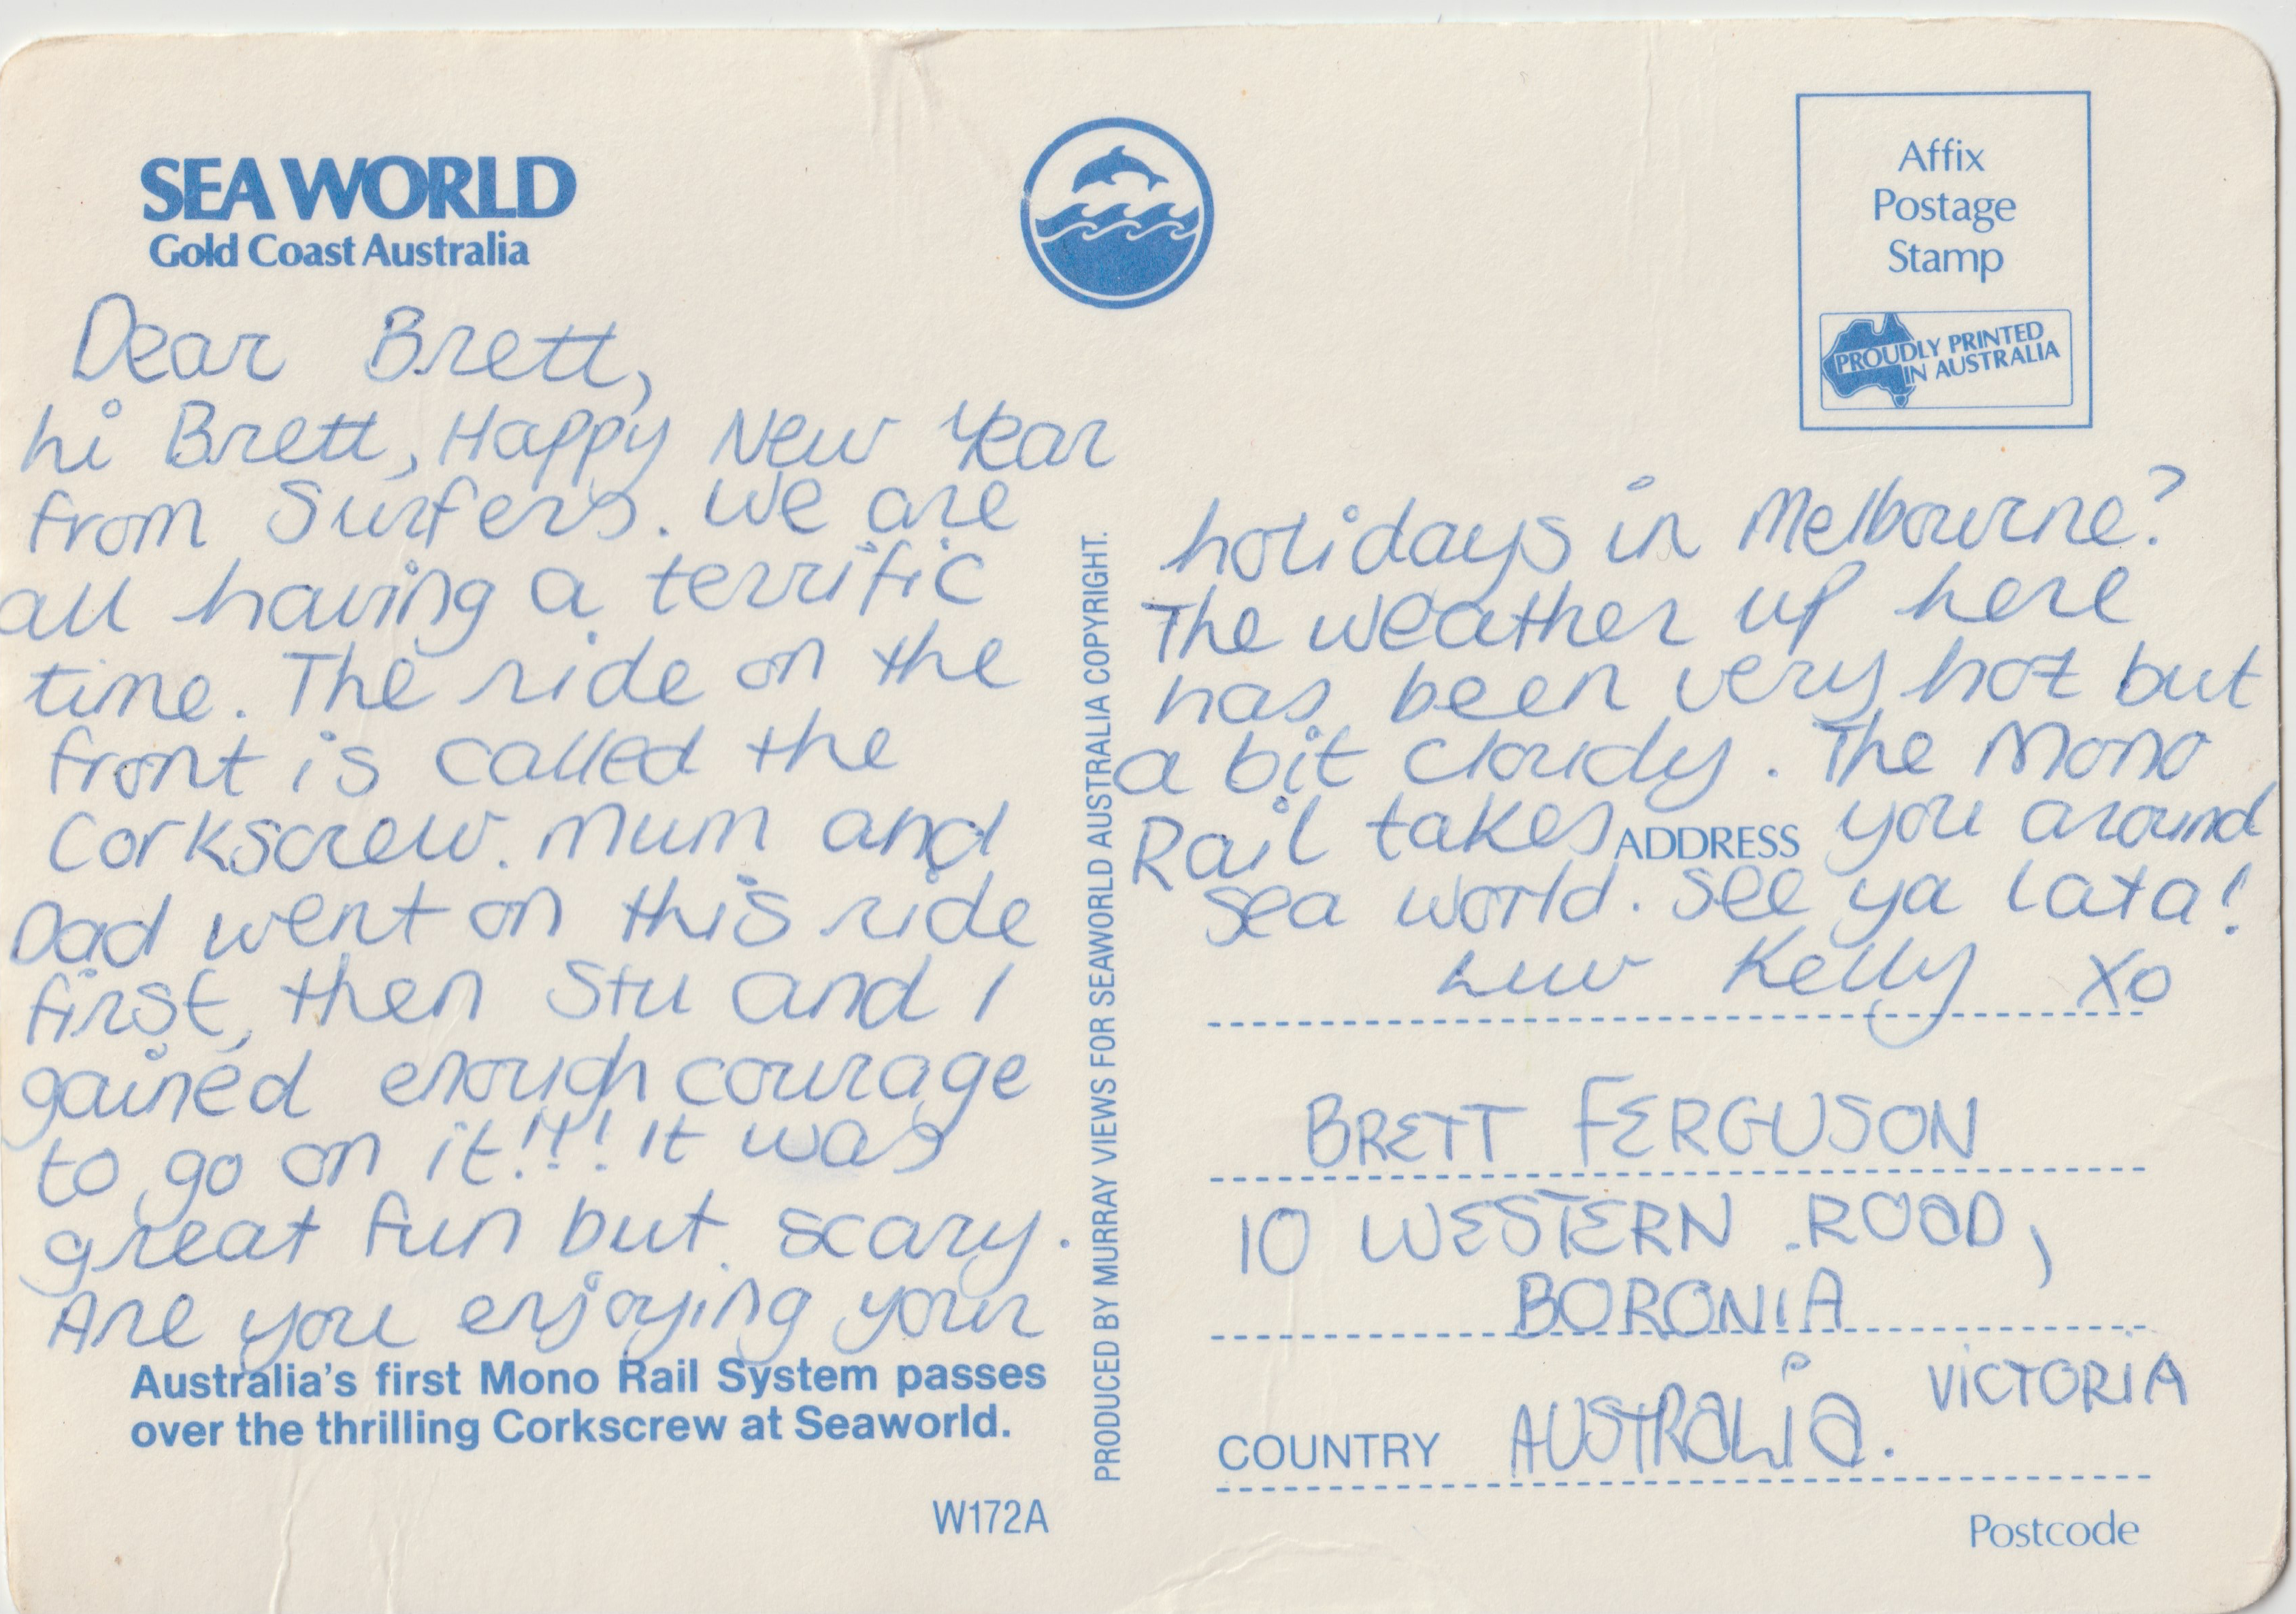 SEA WORLD
Gold Coast Australia
Dear Brett,
hi Brett, Happy New Year
from Surfers. We are
all having a terrific
time. The ride on the
front is called the
Corkscrew. Mum and
Dad went on this ride
first, then Stu and I
gained enough courage
to go on it!!! It was
great fun but scary.
Are you enjoying your
Australia's first Mono Rail System passes
over the thrilling Corkscrew at Seaworld.
W172A
PRODUCED BY MURRAY VIEWS FOR SEAWORLD AUSTRALIA COPYRIGHT.
Affix
Postage
Stamp
PROUDLY PRINTED
IN AUSTRALIA
holidays in Melbourne?
The weather up here
has been very hot but
a bit cloudy. The Mono
Rail takes ADDRESS you around
Sea World. See ya lata!
Luv Kelly XO
BRETT FERGUSON
10 WESTERN ROAD,
BORONIA
VICTORIA
COUNTRY AUSTRALIA.
Postcode